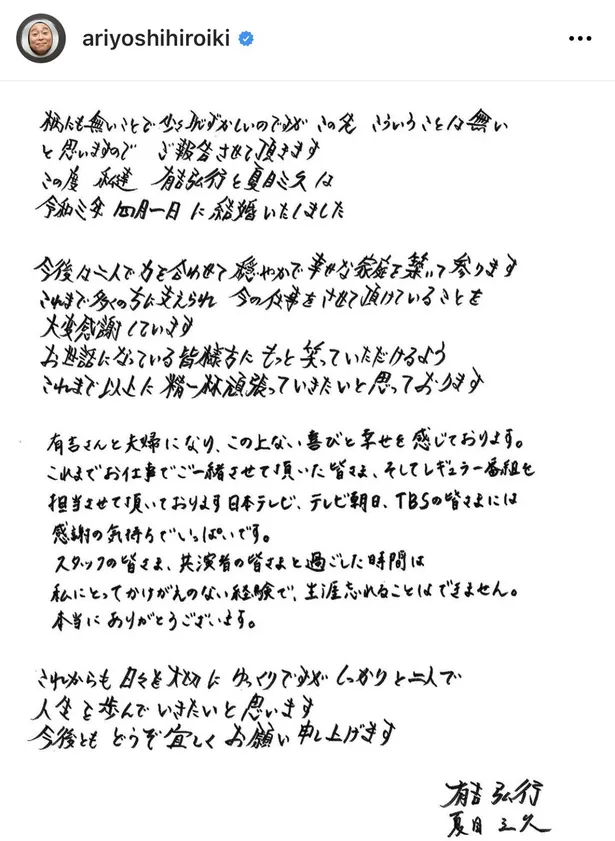 ariyoshihiroiki
柄にも無いことで少々恥ずかしいのですが この先 こういうことは無い
と思いますので ご報告させて頂きます
この度 私達 有吉弘行と夏目三久は
令和三年 四月一日 に結婚いたしました
今後々二人で力を合わせて 穏やかで幸せな家庭を築いて参ります
これまで多くの方に支えられ 今の仕事をさせて頂けていることを
大変感謝しています
お世話になっている皆様方に もっと笑っていただけるよう
これまで以上に 精一杯頑張っていきたいと思っております
有吉さんと夫婦になり、この上ない喜びと幸せを感じております。
これまでお仕事でご一緒させて頂いた皆さま、そしてレギュラー番組を
担当させて頂いております日本テレビ、テレビ朝日、TBSの皆さまには
感謝の気持ちでいっぱいです。
スタッフの皆さま、共演者の皆さまと過ごした時間は
私にとってかけがえのない経験で、生涯忘れることはできません。
本当にありがとうございます。
これからも 日々を大切に ゆっくりですが しっかりと二人で
人生を歩んでいきたいと思います
今後とも どうぞ宜しく お願い申し上げます
有吉弘行
夏目三久